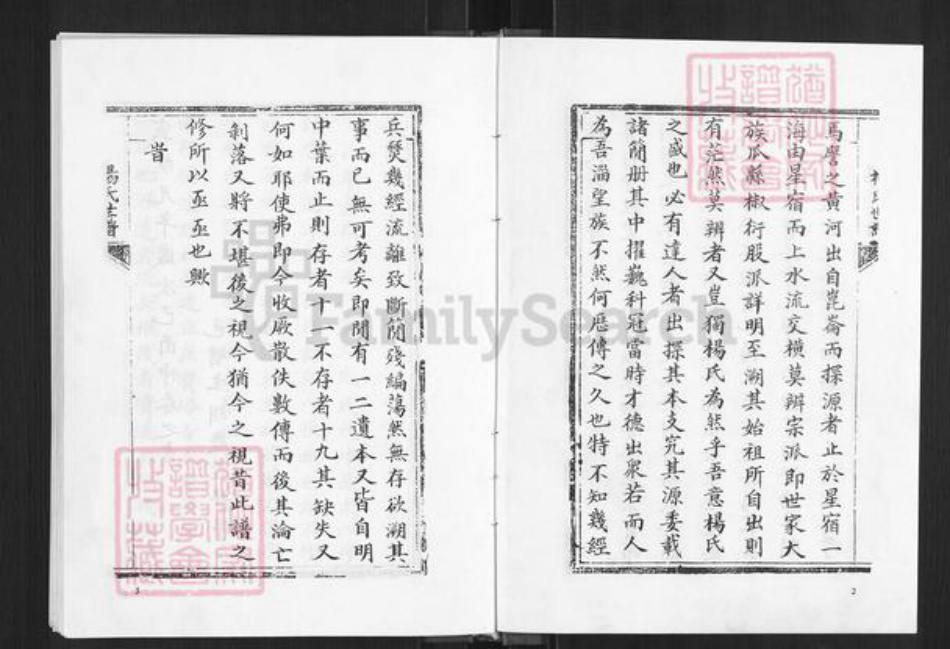 楊氏世譜
馬譬之黃河出自崑崙而探源者止於星宿一
海由星宿而上水流交橫莫辨宗派即世家大
族瓜縣椒衍股派詳明至溯其始祖所自出則
有茫然莫辨者又豈獨楊氏為然乎吾意楊氏
之盛也必有達人者出探其本支究其源委載
諸簡册其中擢巍科冠當時才德出衆若而人
為吾淄望族不然何歷傳之久也特不知幾經
2
兵燹幾經流離致斷簡殘編蕩然無存欲溯其
事而已無可考矣即間有一二遺本又皆自明
中葉而止則存者十一不存者十九其缺失又
何如耶使弗即今收厥散佚數傳而後其淪亡
剝落又將不堪後之視今猶今之視昔此譜之
修所以亟亟也歟
旹
楊氏世譜
3
FamilySearch